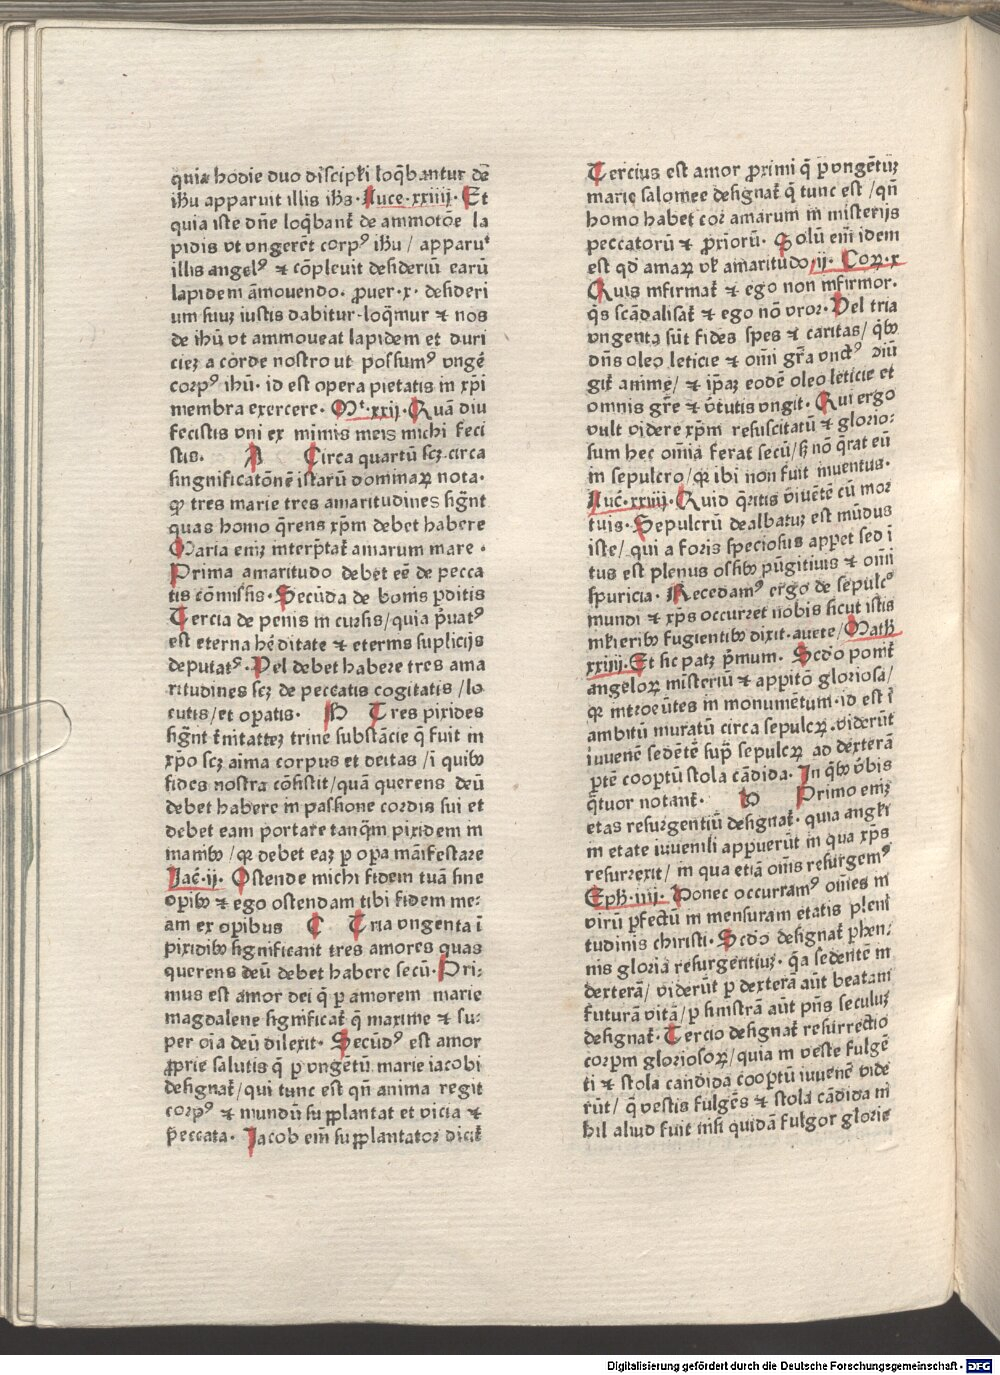 quia hodie duo discipłi loq̄bantur dē
ihū apparuit illis ihs· Luce·xxiiij· Et
quia iste dn̄e loq̄banť de ammotōe la
pidis vt vngerēt corpꝰ ihū / apparuᵗ
illis angelꝰ ⁊ cōpleuit desideriū earū
lapidem āmouendo· ꝓuer·x· desideri
um suuꝫ iustis dabitur·loq̄mur ⁊ nos
de ihū vt ammoueat lapidem et duri
cieꝫ a corde nostro ut possumꝰ vngē
corpꝰ ihū· id est opera pietatis in xp̄i
membra exercere· Mᵗ·xxij· Quā diu
fecistis vni ex minimis meis michi feci
stis· A Circa quartū scꝫ·circa
singnificatōnē istarū dominaꝝ nota·
ꝙ tres marie tres amaritudines sigñt
quas homo q̄rens xp̄m debet habere
Maria eniꝫ interp̄tať amarum mare·
Prima amaritudo debet eē de pecca
tis cōmissis· Secūda de bonis ꝑditis
Tercia de penis incursis / quia p̄uatꝰ
est eterna hēditate ⁊ eternis suplicijs
deputatꝰ· Vel debet habere tres ama
ritudines scꝫ de peccatis cogitatis / lo
cutis / et oꝑatis· B Tres pixides
sigñt tⁱnitatteꝫ trine substācie q̄ fuit in
xp̄o scꝫ aīma corpus et deitas / ī quibꝰ
fides nostra cōsistit / quā querens deū
debet habere in passione cordis sui et
debet eam portare tanq̄m pixidem in
manibꝰ / ꝙ debet eaꝫ ꝑ oꝑa māifestare
Jac̄·ij· Ostende michi fidem tuā sine
oꝑibꝰ ⁊ ego ostendam tibi fidem me⹀
am ex oꝑibus C Tria vngenta ī
pixidibꝰ significant tres amores quas
querens deū debet habere secū· Pri⹀
mus est amor dei q̄ ꝑ amorem marie
magdalene significať q̄ maxime ⁊ su⹀
per oīa deū dilexit· Secūdꝰ est amor
ꝓprie salutis q̄ ꝑ vngētū marie iacobi
designať / qui tunc est qn̄ anima regit
corpꝰ ⁊ mundū supplantat et vicia ⁊
peccata· Jacob em̄ supplantator diciť
Tercius est amor ꝓximi q̄ ꝑ vngētuꝫ
marie salomee designať q̄ tunc est / qn̄
homo habet cor amarum in miserijs
peccatorū ⁊ ꝓxiorū· Solū em̄ idem
est qd̄ amaꝝ vł amaritudo / ij· Coꝝ·x
Quis infirmať ⁊ ego non infirmor·
q̄s scādalisať ⁊ ego nō vror· Vel tria
vngenta sūt fides spes ⁊ caritas / q̄bꝰ
dn̄s oleo leticie ⁊ om̄i gr̄a vnctꝰ diū
git anime / ⁊ ip̄aꝫ eodē oleo leticie et
omnis gr̄e ⁊ v̄tutis vngit· Qui ergo
vult videre xp̄m resuscitatū ⁊ glorio⹀
sum hec om̄ia ferat secū / sꝫ nō q̄rat eū
in sepulcro / ꝙ ibi non fuit inuentus·
Luc̄·xxiiij· Quid q̄ritis viuētē cū mor
tuis· Sepulcrū dealbatuꝫ est mūdus
iste / qui a foris speciosus apꝑet sed ī
tus est plenus ossibꝰ pūgitiuis ⁊ om̄i
spuricia· Recedamꝰ ergo de sepulcꝰ
mundi ⁊ xp̄s occurret nobis sicut istis
młieribꝰ fugientibꝰ dixit·auete / Math̄
xxiiij· Et sic patꝫ p̄mum· Scd̄o poniť
angeloꝝ misteriū ⁊ appitō gloriosa /
ꝙ introeūtes in monumētum·id est ī
ambitū muratū circa sepulcꝝ·viderūt
iuuenē sedētē suꝑ sepulcꝝ ad dexterā
ꝑtē cooꝑtū stola cādida· In q̄bꝰ v̄bis
q̄tuor notanť· D Primo eniꝫ
etas resurgentiū designať· quia angłi
in etate iuuenili appuerūt in qua xp̄s
resurrexit / in qua etiā om̄s resurgemꝰ
Eph̄·iiij· Donec occurramꝰ om̄es in
virū ꝑfectū in mensuram etatis pleni
tudinis christi· Scd̄o designať ꝑhen⹀
nis gloria resurgentiuꝫ· q̄a sedentē in
dexterā / viderūt ꝑ dexterā aūt beatam
futurā vitā / ꝑ sinistrā aūt pn̄s seculuꝫ
designať· Tercio designať resurrectio
corꝑm glorio̅soꝝ / quia in veste fulgē
ti ⁊ stola candida cooꝑtū iuuenē vide
rūt / q̄ vestis fulgēs ⁊ stola cādida ni
hil aliud fuit nisi quidā fulgor glorie
Digitalisierung gefördert durch die Deutsche Forschungsgemeinschaft · DFG